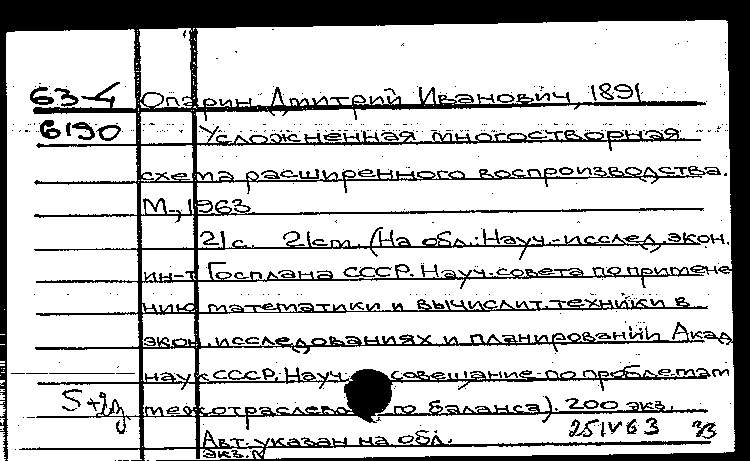 63-4 Опарин, Дмитрий Иванович, 1891
6190 Усложненная многостворная
схема расширенного воспроизводства.
М., 1963
21с. 21см. (На обл.: Науч.-исслед. экон.
ин-т Госплана СССР. Науч. совета по примене
нию математики и вычислит. техники в
экон. исследованиях и планировании Акад
наук СССР. Науч. совещание по проблемам
межотраслевого баланса). 200 экз.
Авт. указан на обл. 25IV63 33
экз. N